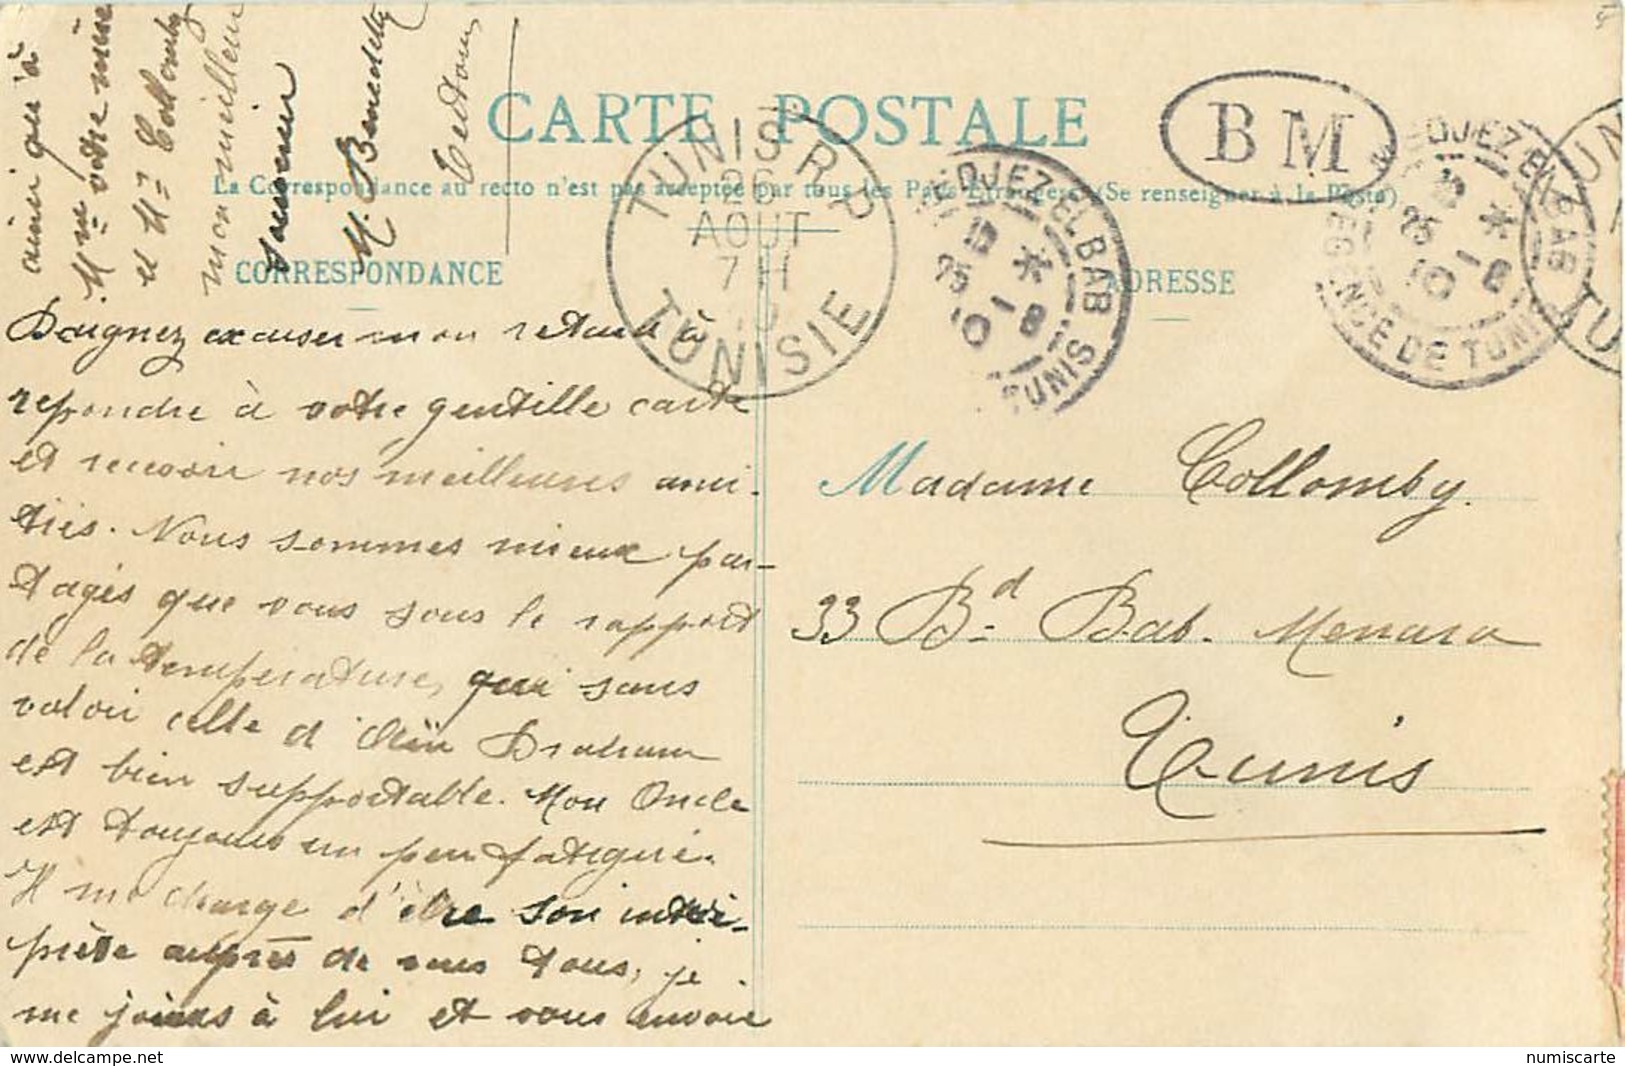 CARTE POSTALE
La Correspondance au recto n'est pas acceptée par tous les Pays Etrangers (Se renseigner à la Poste)
CORRESPONDANCE
ADRESSE
TUNIS R. P.
26
AOUT
7 H
10
TUNISIE
MEDJEZ EL BAB
18 *
25 -8
10
TUNIS
B M
MEDJEZ EL BAB
18 *
25 -8
10
REGENCE DE TUNIS
Daignez excuser mon retard à
repondre à votre gentille carte
et recevoir nos meilleures ami-
tiés. Nous sommes mieux par-
tagés que vous sous le rapport
de la température, qui sans
valoir celle d'Aïn Draham
est bien supportable. Mon Oncle
est toujours un peu fatigué.
Il me charge d'être son inter-
prète auprès de vous tous, je
me joins à lui et vous envoie
ainsi qu'à
Mme votre mère
et Mr Collomby
mon meilleur
souvenir
M. Benedetti
Testour
Madame Collomby.
33 Bd Bab-Menara
Tunis
www.delcampe.net
numiscarte